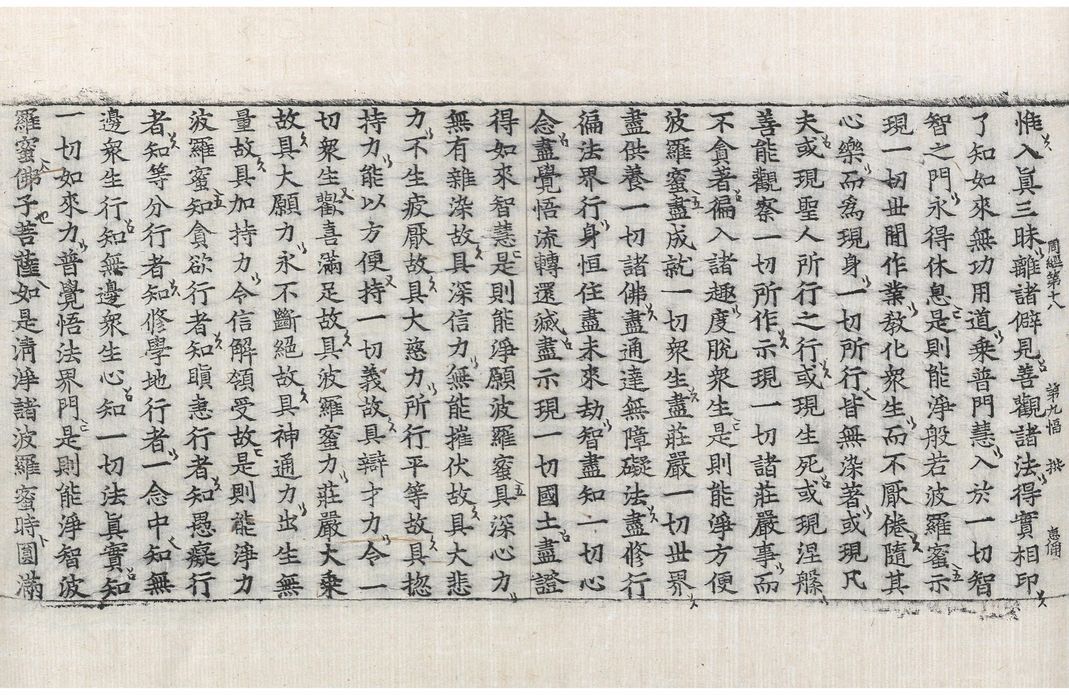 惟入眞三昧離諸僻見善觀諸法得實相印
周經第十八 第九幅
了知如來無功用道乘普門慧入於一切智
智之門永得休息是則能淨般若波羅蜜示
現一切世間作業敎化衆生而不厭倦隨其
心樂而爲現身一切所行皆無染著或現凡
夫或現聖人所行之行或現生死或現涅槃
善能觀察一切所作示現一切諸莊嚴事而
不貪著徧入諸趣度脫衆生是則能淨方便
波羅蜜盡成就一切衆生盡莊嚴一切世界
盡供養一切諸佛盡通達無障礙法盡修行
徧法界行身恒住盡未來劫智盡知一切心
念盡覺悟流轉還滅盡示現一切國土盡證
得如來智慧是則能淨願波羅蜜具深心力
無有雜染故具深信力無能摧伏故具大悲
力不生疲厭故具大慈力所行平等故具揔
持力能以方便持一切義故具辯才力令一
切衆生歡喜滿足故具波羅蜜力莊嚴大乘
故具大願力永不斷絕故具神通力出生無
量故具加持力令信解領受故是則能淨力
波羅蜜知貪欲行者知瞋恚行者知愚癡行
者知等分行者知修學地行者一念中知無
邊衆生行知無邊衆生心知一切法眞實知
一切如來力普覺悟法界門是則能淨智波
羅蜜佛子菩薩如是淸淨諸波羅蜜時圓滿